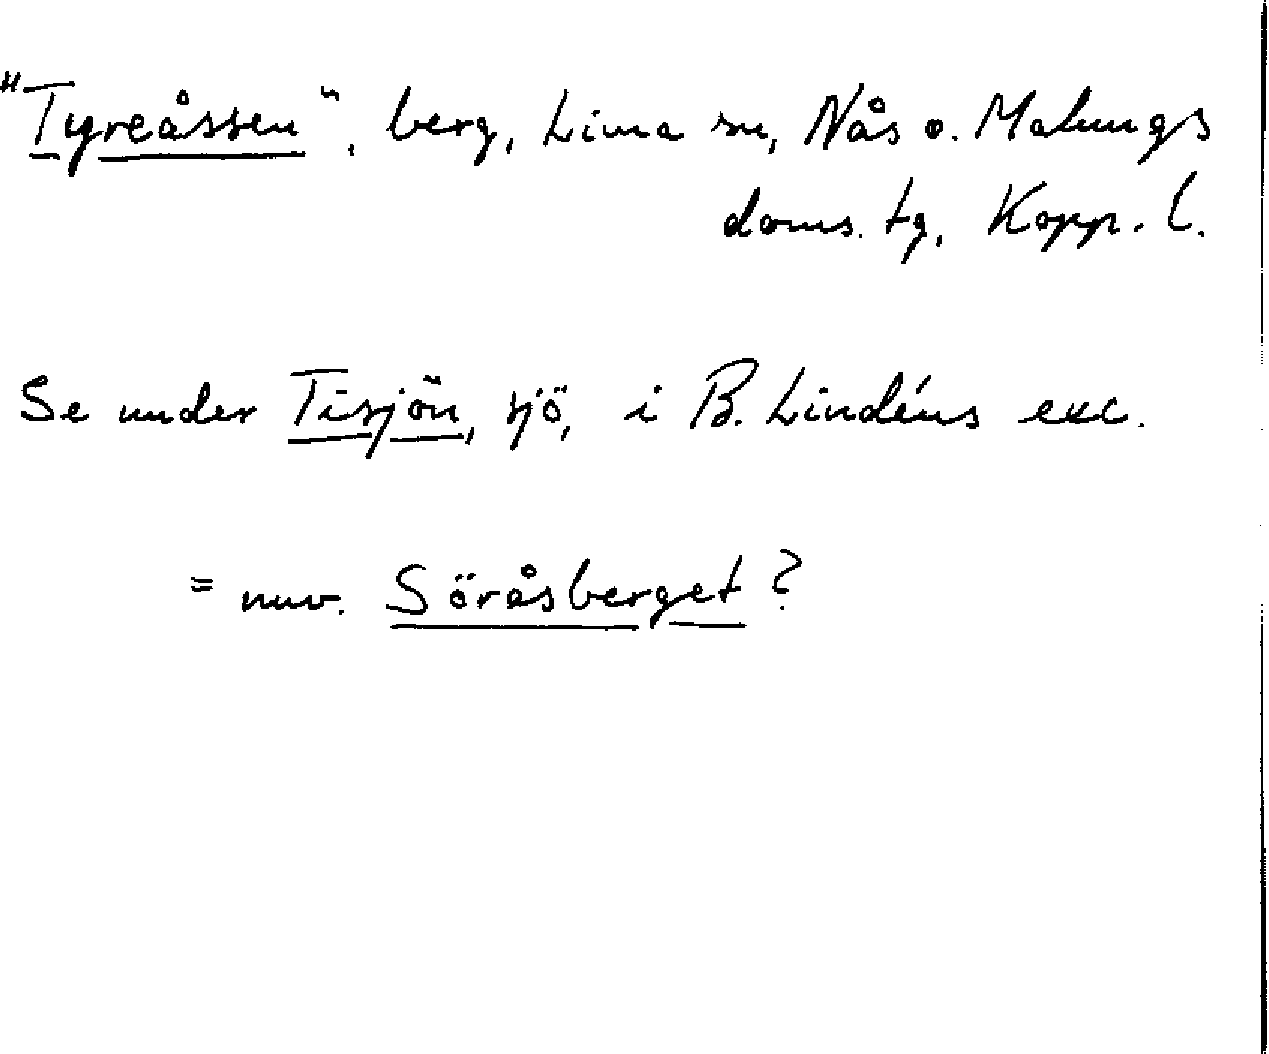 "Tyreåssen", berg, Lima sn, Nås o. Malungs
doms. tg, Kopp. l.
Se under Tisjön, sjö, i B. Lindéns exc.
= nuv. Söråsberget?